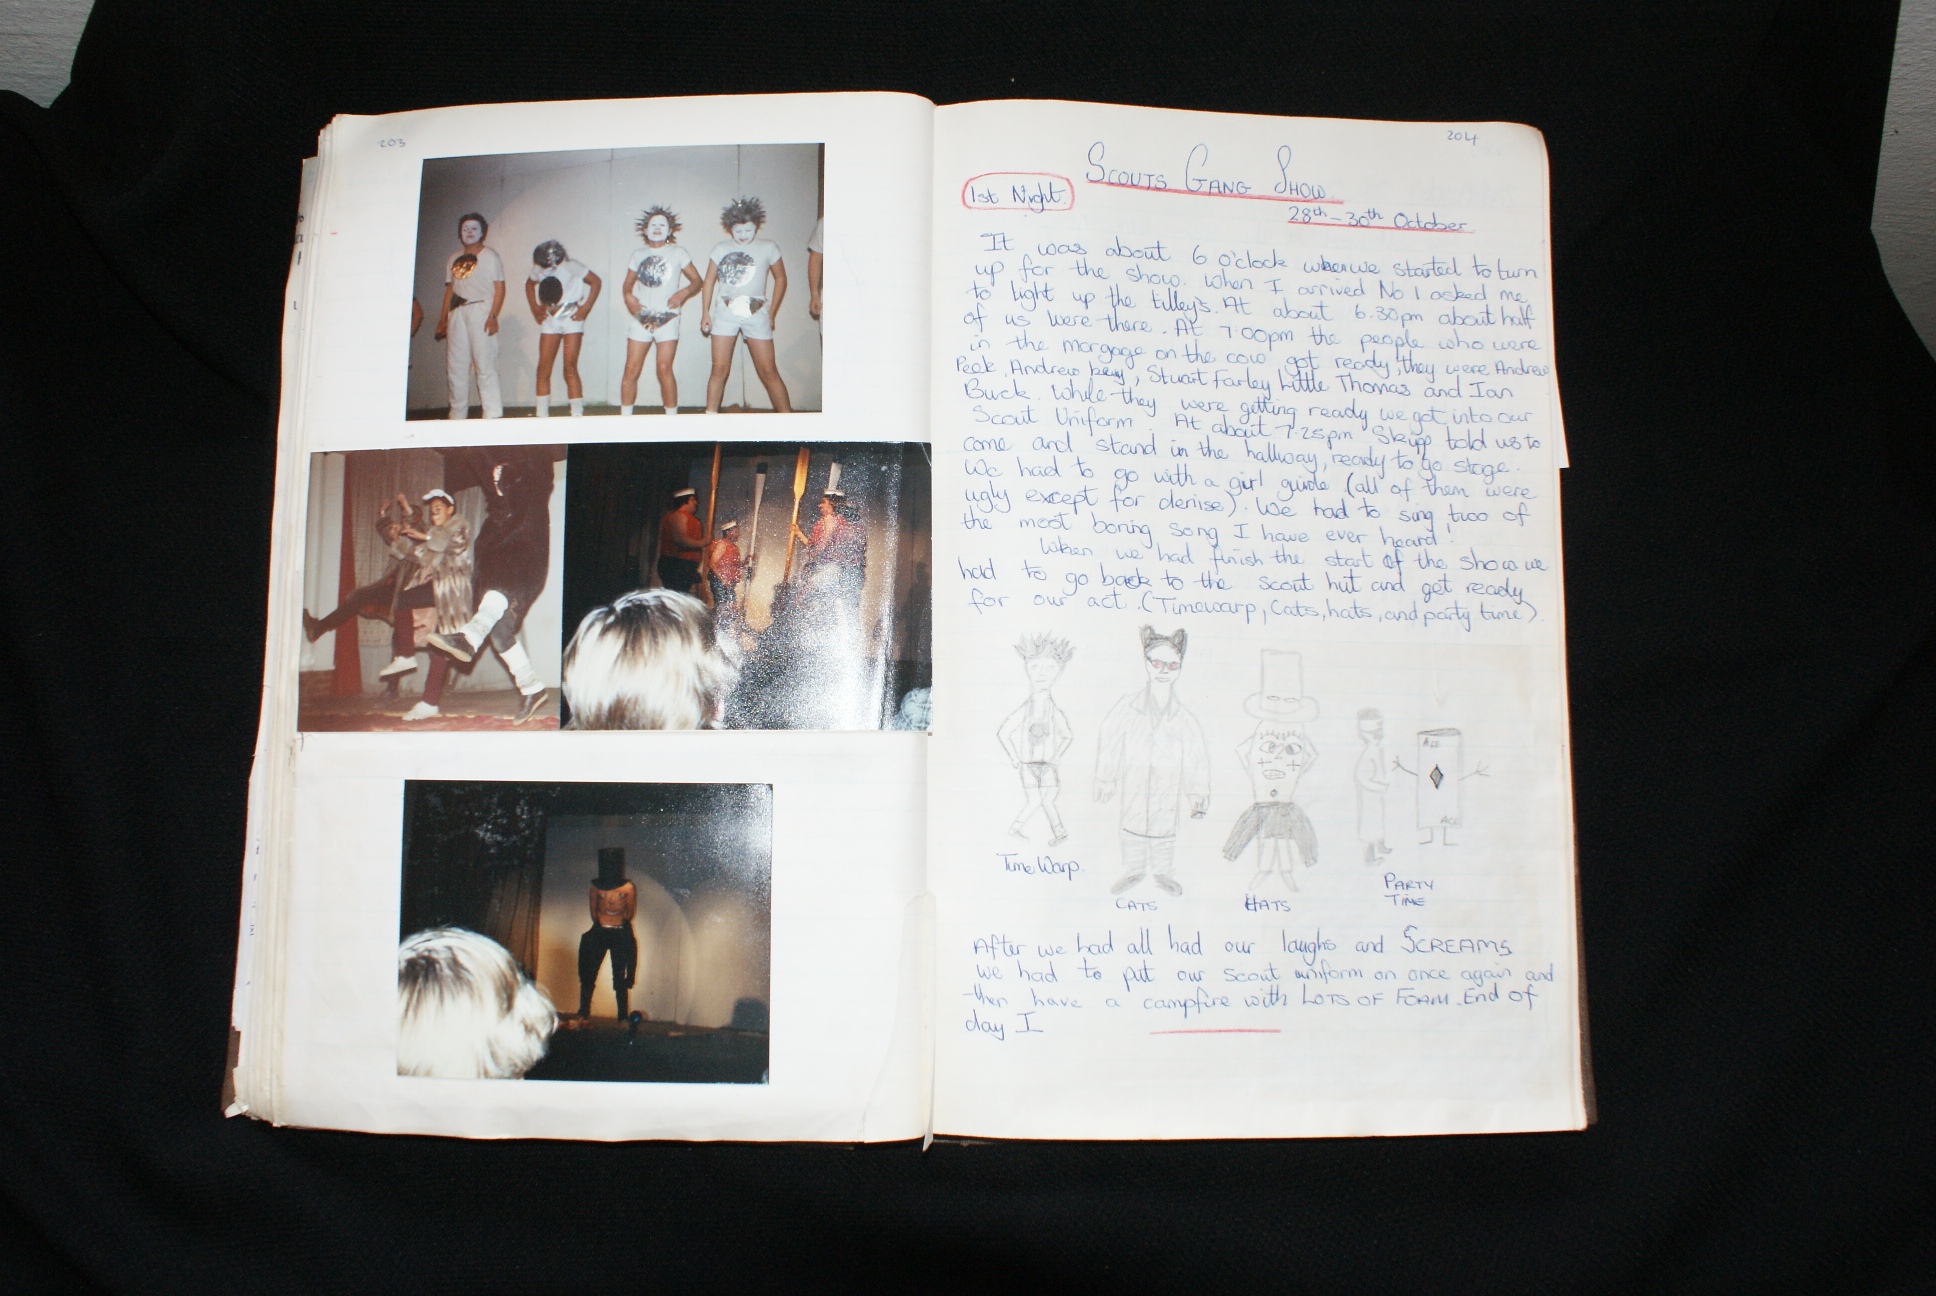 203
204
Scouts Gang Show
1st Night
28th - 30th October
It was about 6 o'clock when we started to turn
up for the show. When I arrived No 1 asked me
to light up the tilley's. At about 6.30pm about half
of us were there. At 7.00pm the people who were
in the morgage on the cow' got ready, they were Andrew
Peek, Andrew Key, Stuart Farley Little Thomas and Ian
Buck. While they were getting ready we got into our
Scout Uniform. At about 7.25pm Skipp told us to
come and stand in the hallway, ready to go stage.
We had to go with a girl guide (all of them were
ugly except for denise). We had to sing two of
the most boring song I have ever heard!
When we had finish the start of the show we
had to go back to the scout hut and get ready
for our act. (Timewarp, Cats, hats, and party time).
Ace
Ace
Time Warp.
CATS
HATS
PARTY
TIME
After we had all had our laughs and SCREAMS
we had to put our scout uniform on once again and
then have a campfire with LOTS OF FOAM. End of
day I